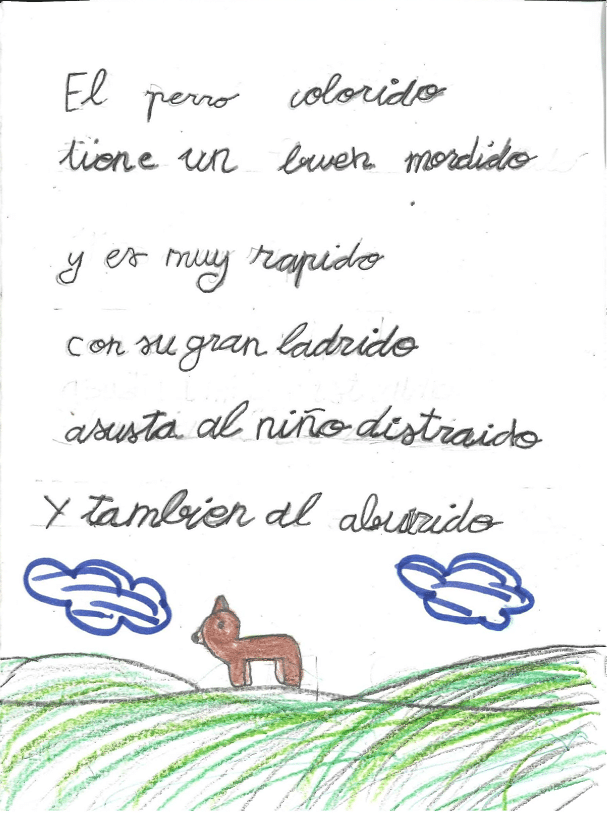 El perro colorido
tiene un buen mordido
y es muy rapido
con su gran ladrido
asusta al niño distraido
Y tambien al aburrido